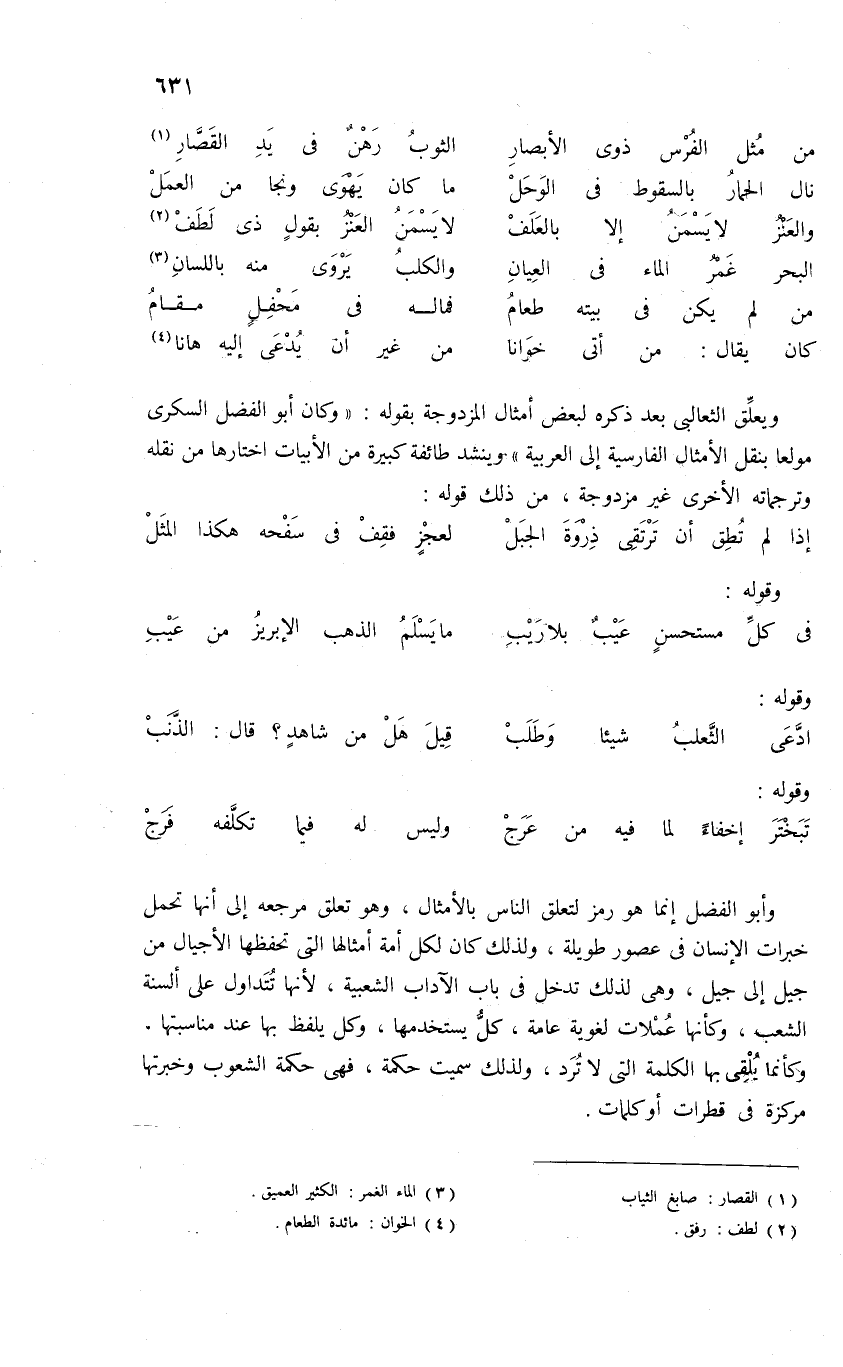 ٦٣١
من مُثل الفُرْس ذوى الأبصارِ الثوبُ رَهْنٌ فى يَدِ القَصَّارِ (١)
نال الحمارُ بالسقوط فى الوَحَلْ ما كان يَهْوَى ونجا من العملْ
والعَنْزُ لا يَسْمَنُ إلا بالعَلَفْ لا يَسْمَنُ العَنْزُ بقولٍ ذى لَطَفْ (٢)
البحر غَمْرُ الماء فى العِيانِ والكلبُ يَرْوَى منه باللسانِ (٣)
من لم يكن فى بيته طعامُ فمالـــه فى مَحْفِلٍ مقـــامُ
كان يقال : من أتى خوَانا من غير أن يُدْعَى إليه هانا (٤)
ويعلِّق الثعالبى بعد ذكره لبعض أمثال المزدوجة بقوله : « وكان أبو الفضل السكرى
مولعا بنقل الأمثال الفارسية إلى العربية » وينشد طائفة كبيرة من الأبيات اختارها من نقله
وترجماته الأخرى غير مزدوجة ، من ذلك قوله :
إذا لم تُطِق أن تَرْتَقِى ذِرْوَةَ الجَبَلْ لعجْزٍ فقِفْ فى سَفْحه هكذا المثَلْ
وقوله :
فى كلِّ مستحسنٍ عَيْبٌ بلا رَيْبِ ما يَسْلَمُ الذهب الإبريزُ من عَيْبِ
وقوله :
ادَّعَى الثَّعلبُ شيئا وَطَلَبْ قِيلَ هَلْ من شاهدٍ ؟ قال : الذَّنَبْ
وقوله :
تَبَخْتَرَ إخفاءً لما فيه من عَرَجْ وليس له فيما تكلَّفه فَرَجْ
وأبو الفضل إنما هو رمز لتعلق الناس بالأمثال ، وهو تعلق مرجعه إلى أنها تحمل
خبرات الإنسان فى عصور طويلة ، ولذلك كان لكل أمة أمثالها التى تحفظها الأجيال من
جيل إلى جيل ، وهى لذلك تدخل فى باب الآداب الشعبية ، لأنها تُتَداول على ألسنة
الشعب ، وكأنها عُمْلات لغوية عامة ، كلٌّ يستخدمها ، وكل يلفظ بها عند مناسبتها .
وكأنما يُلْقِى بها الكلمة التى لا تُرَد ، ولذلك سميت حكمة ، فهى حكمة الشعوب وخبرتها
مركزة فى قطرات أو كلمات .
(١) القصار : صابغ الثياب
(٢) لطف : رفق .
(٣) الماء الغمر : الكثير العميق .
(٤) الخوان : مائدة الطعام .